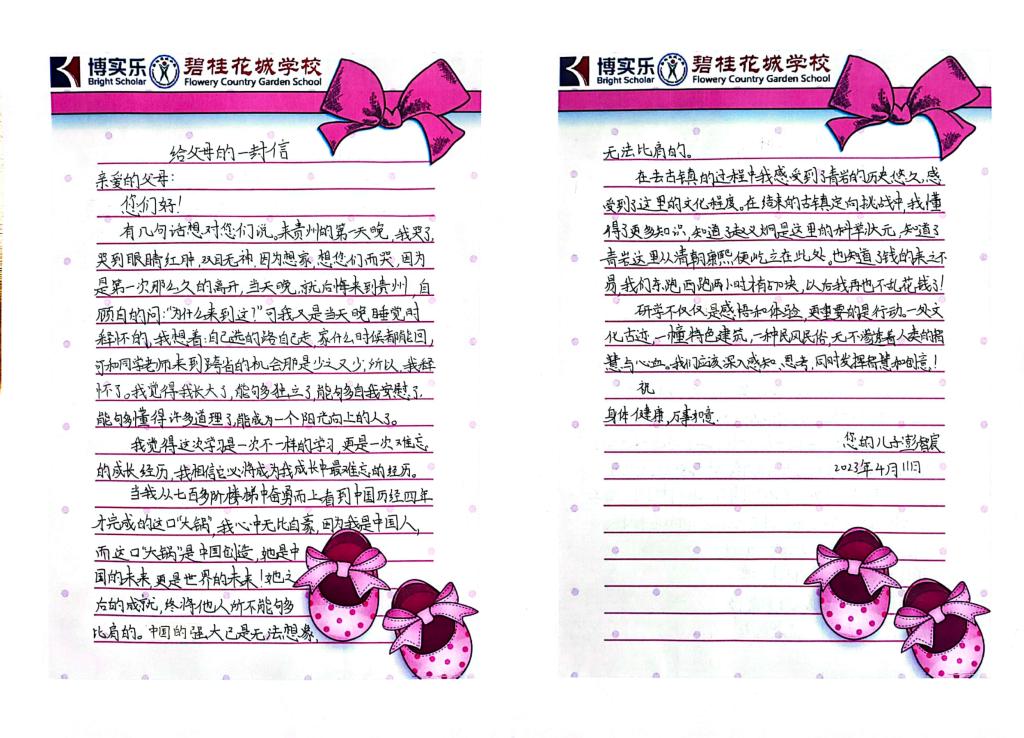 博实乐
Bright Scholar
碧桂花城学校
Flowery Country Garden School
给父母的一封信
亲爱的父母：
您们好！
有几句话想对您们说。来贵州的第一天晚，我哭了，
哭到眼睛红肿，双目无神，因为想家，想您们而哭，因为
是第一次那么久的离开，当天晚，就后悔来到贵州，自
顾自的问："为什么来到这？"可我又是当天晚，睡觉时
释怀的，我想着：自己选的路自己走，家什么时候都能回，
可和同学老师来到跨省的机会那是少之又少，所以，我释
怀了。我觉得我长大了，能够独立了，能够自我安慰了，
能够懂得许多道理了，能成为一个阳光向上的人了。
我觉得这次学习是一次不一样的学习，更是一次难忘
的成长经历，我相信它必将成为我成长中最难忘的经历。
当我从七百多阶楼梯中奋勇而上看到中国历经四年
才完成的这口"大锅"，我心中无比自豪，因为我是中国人，
而这口"大锅"是中国创造，她是中
国的未来，更是世界的未来！她之
后的成就，终将他人所不能够
比肩的。中国的强大已是无法想象，
博实乐
Bright Scholar
碧桂花城学校
Flowery Country Garden School
无法比肩的。
在去古镇的过程中我感受到了青岩的历史悠久，感
受到了这里的文化程度。在结束的古镇定向挑战中，我懂
得了更多知识，知道了赵以炯是这里的科举状元，知道了
青岩这里从清朝康熙便屹立在此处。也知道了钱的来之不
易，我们东跑西跑两小时才有50块，以后我再也不乱花钱了！
研学不仅仅是感悟和体验，更重要的是行动。一处文
化古迹，一幢特色建筑，一种民风民俗，无不渗透着人类的智
慧与心血。我们应该深入感知、思考，同时发挥智慧和创意！
祝
身体健康，万事如意．
您的儿子：彭
2023年4月11日